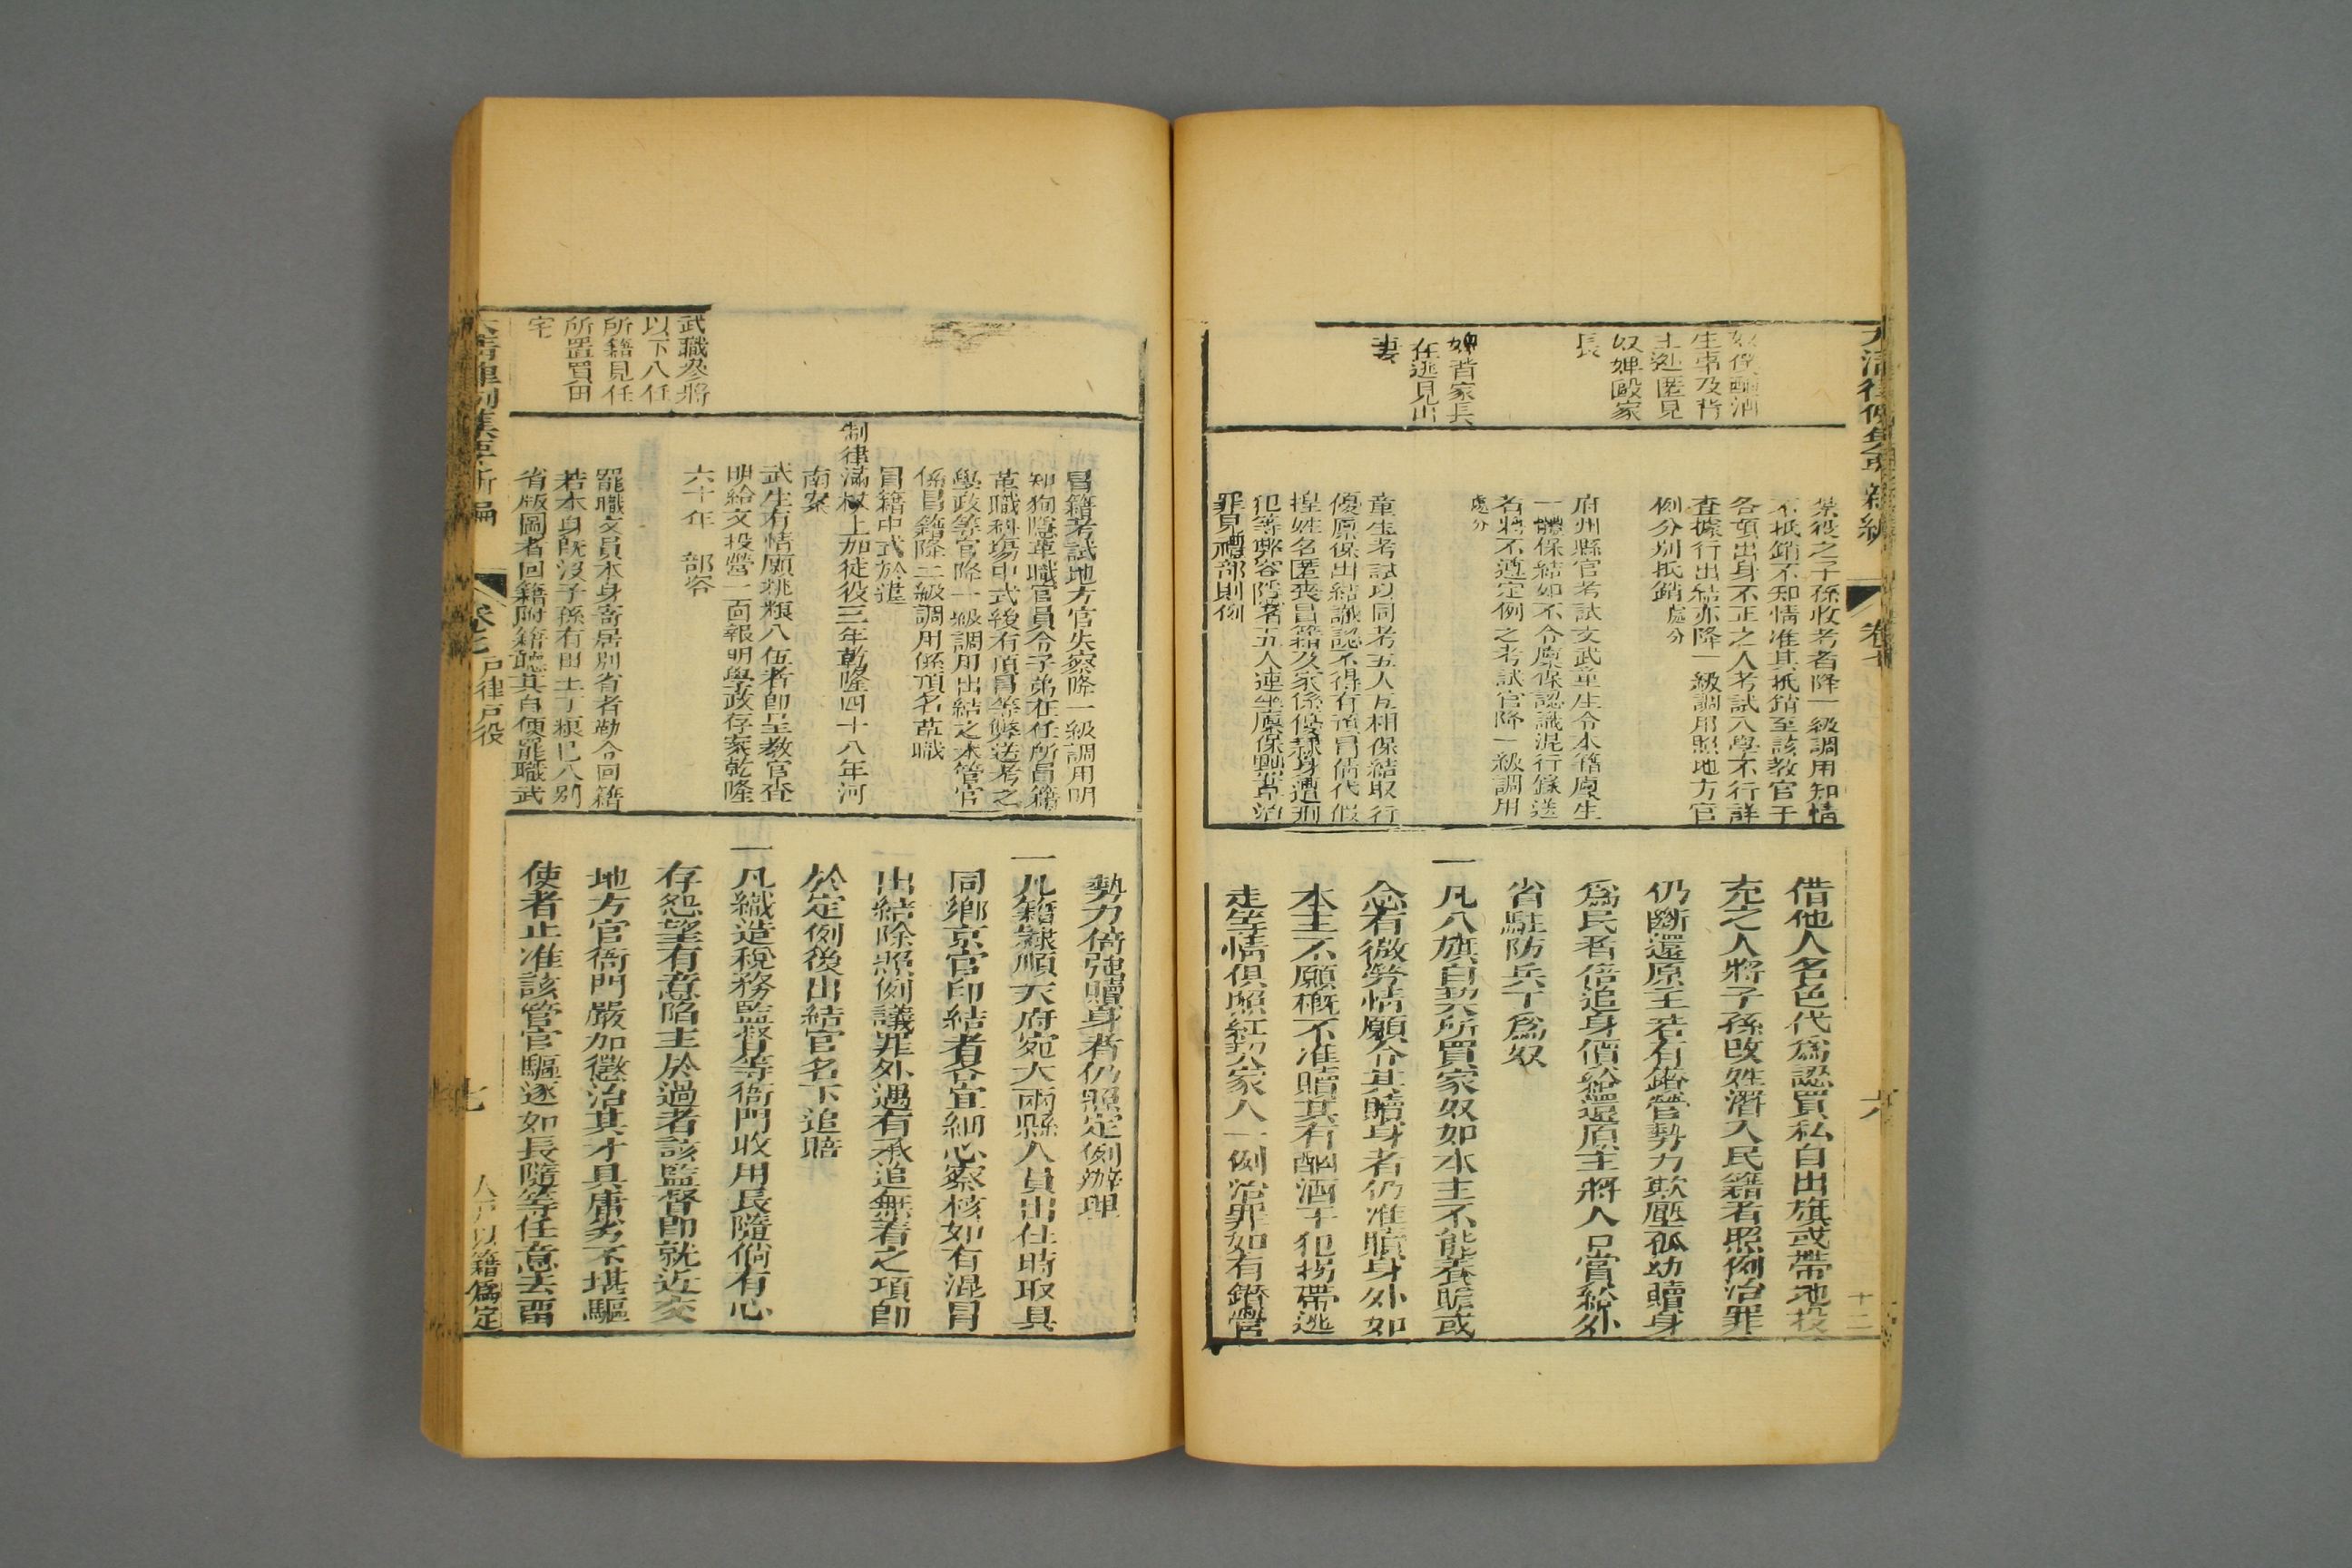 大清律例集要新編
卷七
六
奴僕酗酒
生事及背
主逃匿見
奴婢毆家
長
婢背家長
在逃見出
妻
隸役之子孫收考者降一級調用知情
不抵銷不知情准其抵銷至該教官于
各項出身不正之人考試入學不行詳
查據行出結亦降一級調用照地方官
例分別抵銷處分
府州縣官考試文武童生令本籍廩生
一體保結如不令廩保認識混行錄送
者將不遵定例之考試官降一級調用
處分
童生考試以同考五人互相保結取行
優廩保出結識認不得有頂冒倩代假
捏姓名匿喪冒籍及家係優隸身遭刑
犯等弊容隱者五人連坐廩保黜革治
罪見禮部則例
借他人名色代為認買私自出旗或帶地投
充之人將子孫改姓潛入民籍者照例治罪
仍斷還原主若有鑽營勢力欺壓孤幼贖身
為民者倍追身價給還原主將人口賞給外
省駐防兵丁為奴
一凡八旗白契所買家奴如本主不能養贍或
念有微勞情願令其贖身者仍准贖身外如
本主不願概不准贖其有酗酒干犯拐帶逃
走等情俱照紅契家人一例治罪如有鑽營
武職參將
以下入任
所籍見任
所置買田
宅
冒籍考試地方官失察降一級調用明
知狥隱革職官員令子弟在任所冒籍
革職科場中式後有頂冒等弊送考之
學政等官降一級調用出結之本管官
係冒籍降二級調用係頂名革職
冒籍中式於違
制律滿杖上加徒役三年乾隆四十八年河
南案
武生有情願挑糧入伍者即呈教官查
明給文投營一面報明學政存案乾隆
六十年 部咨
罷職文員本身寄居別省者勒令回籍
若本身既沒子孫有田土丁糧已入別
省版圖者回籍附籍聽其自便罷職武
勢力倚強贖身者仍照定例辦理
一凡籍隸順天府宛大兩縣人員出仕時取具
同鄉京官印結者務宜細心察核如有混冒
出結除照例議罪外遇有承追無着之項即
於定例後出結官名下追賠
一凡織造稅務監督等衙門收用長隨倘有心
存怨望有意陷主於過者該監督即就近交
地方官衙門嚴加懲治其才具庸劣不堪驅
使者止准該管官驅逐如長隨等任意去留
大清律例集要新編
卷七
戶律戶役
七
人戶以籍爲定